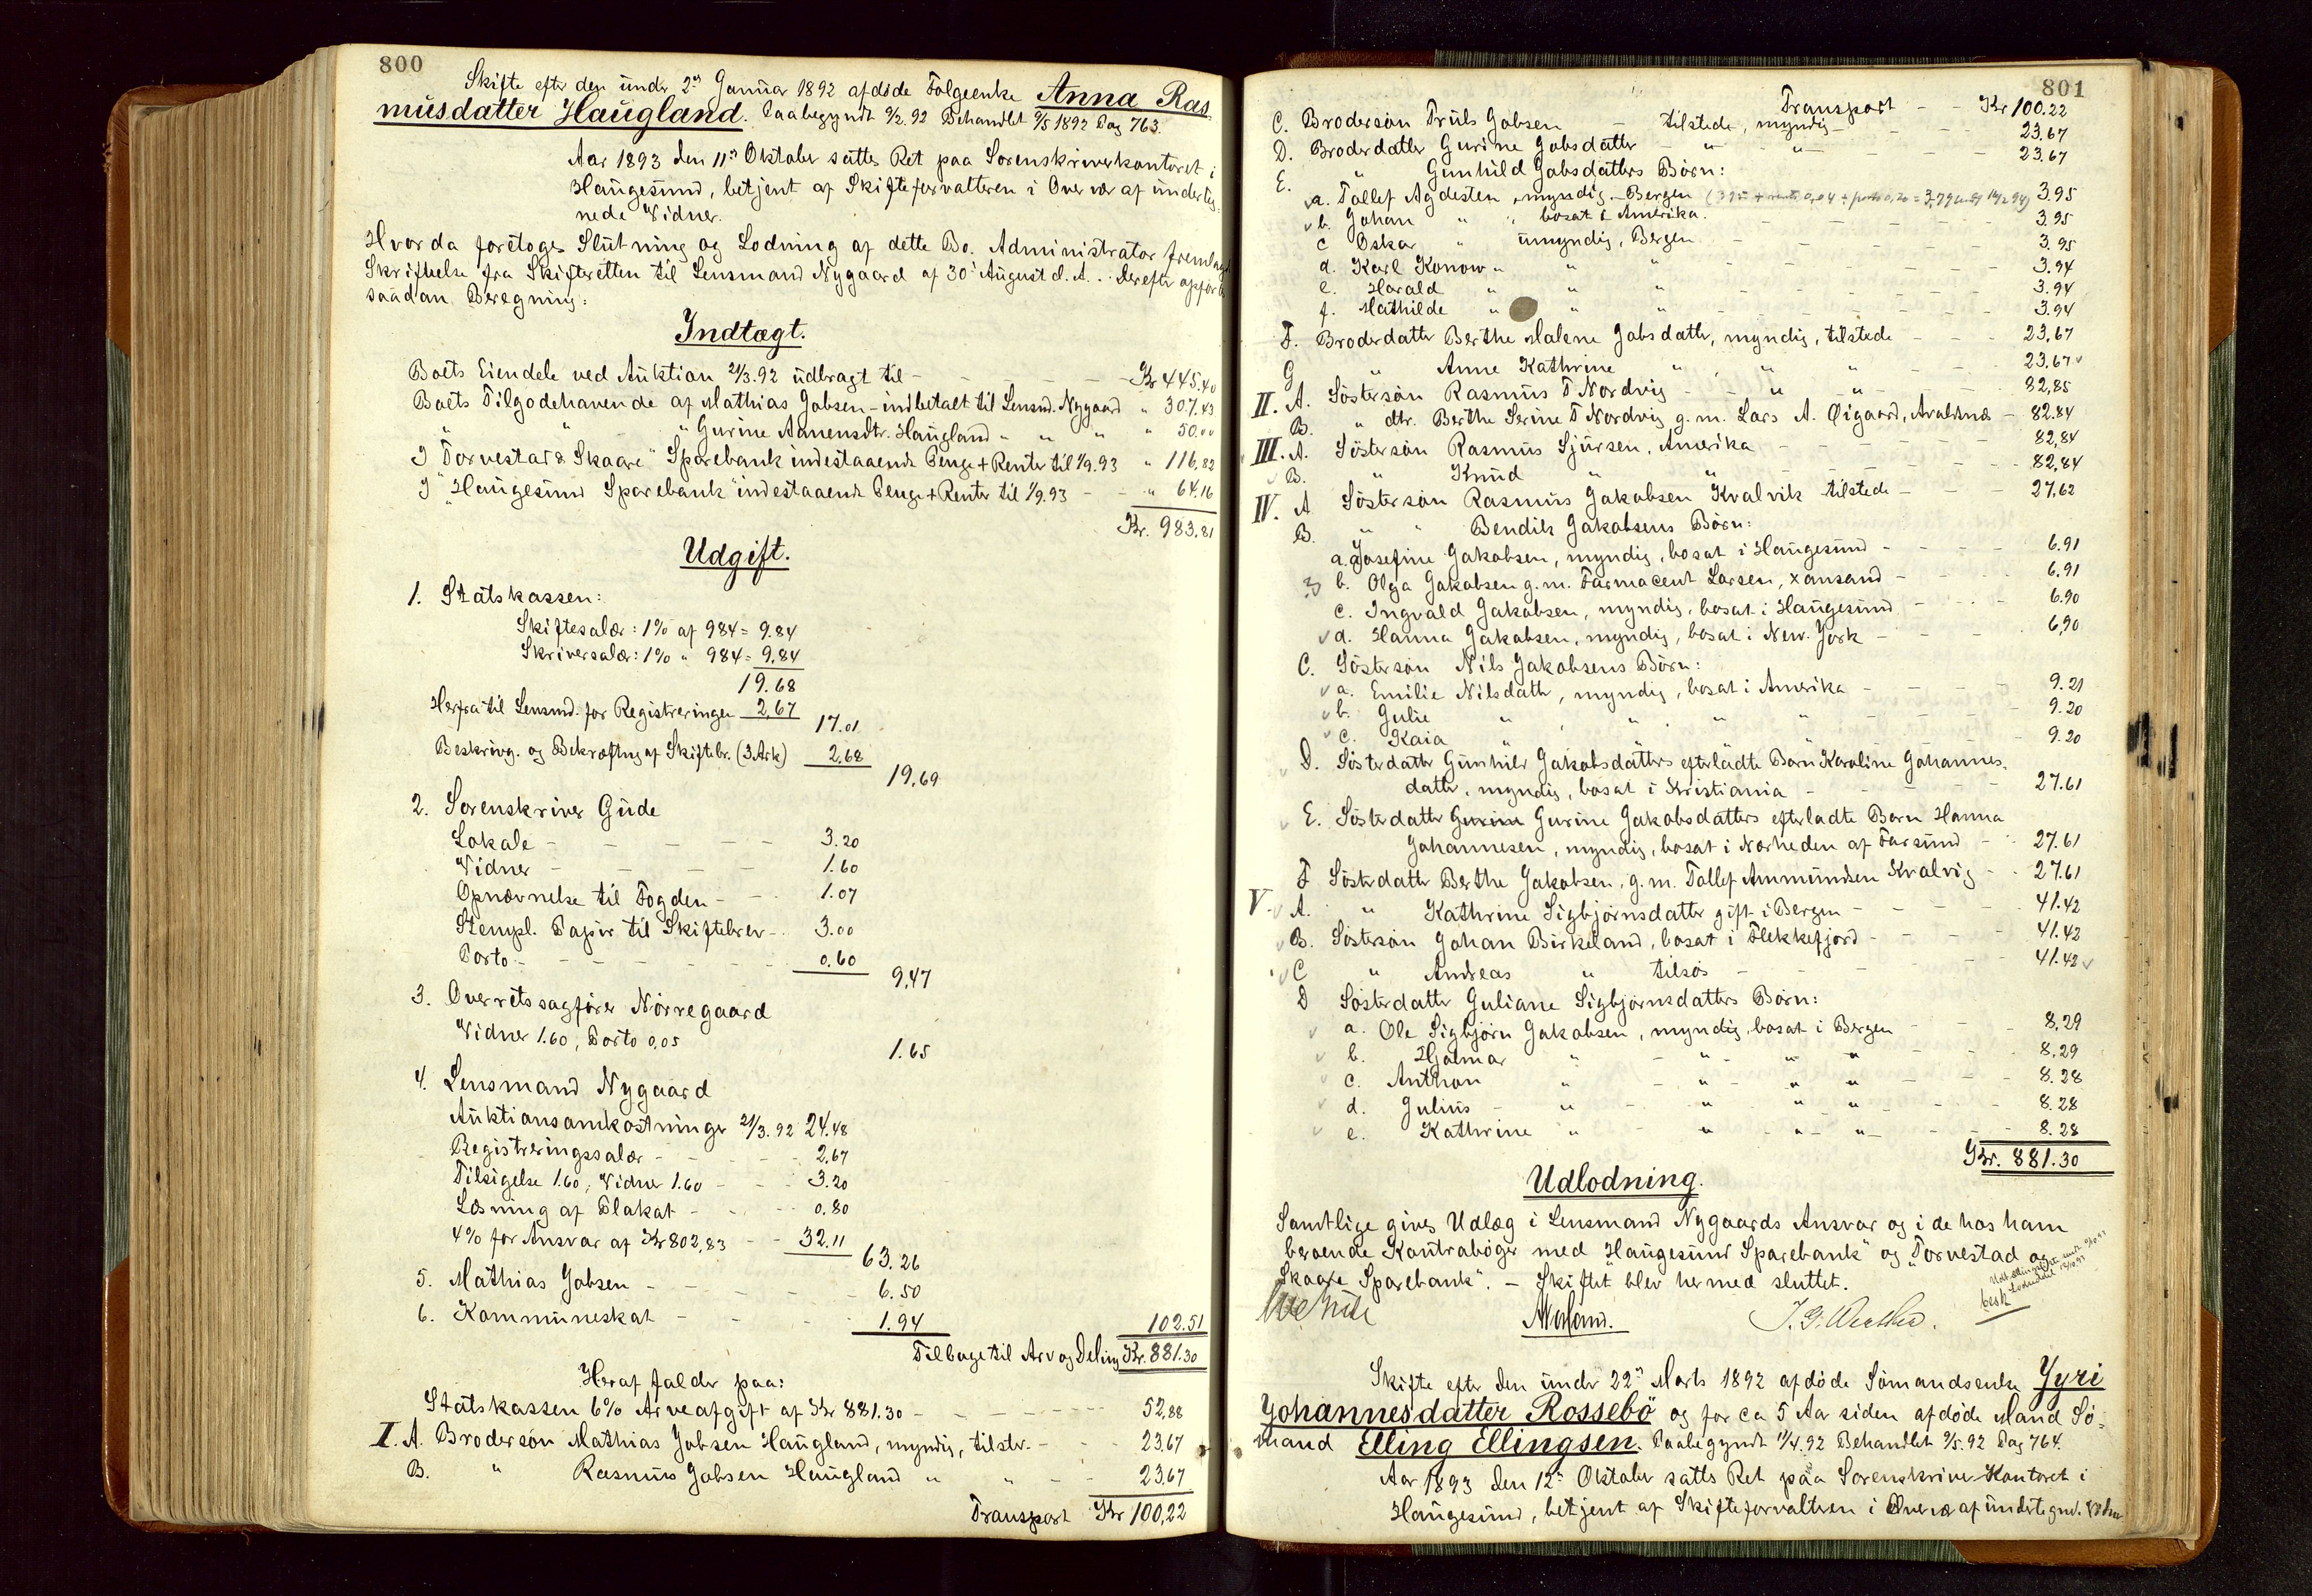 800
Skifte efter den under 2den Januar 1892 afdøde Følgeenke Anna Ras-
musdatter Haugland. Paabegyndt 9/2.92 Behandlet 9/5 1892 Dag 763.
Aar 1893 den 11te Oktober sattes Ret paa Sorenskriverkontoret i
Haugesund, betjent af Skifteforvalteren i Overvær af underteg-
nede Vidner.
Hvorda foretoges Slutning og Lodning af dette Bo. Administrator fremlagde
Skrivelse fra Skifteretten til Lensmand Nygaard af 30' August d. A. . Derefter opførtes
saadan Beregning:
Indtægt.
Boets Eiendele ved Auktion 21/3.92 udbragt til - - - - - Kr 445.40
Boets Tilgodehavende af Mathias Jobsen - indbetalt til Lensmd. Nygaard " 307.43
" " " Gurine Aanensdtr. Haugland " " " " 50.00
I "Torvestad & Skaare" Sparebank indestaaende Penge + Renter til 1/9.93 " 116,82
I "Haugesund Sparebank" indestaaende Penge + Renter til 1/9.93 - - " 64,16
Kr. 983,81
Udgift.
1. Statskassen:
Skiftesalær: 1% af 984 = 9.84
Skriversalær: 1% " 984 = 9,84
19.68
Herfra til Lensmd. for Registreringen 2,67 17.01
Beskrivg. og Bekræftng af Skiftebr. (3 Ark) 2,68
19,69
2. Sorenskriver Gude
Lokale - - - - - - 3.20
Vidner - - - - - 1.60
Opnævnelse til Fogden - - - 1.07
Stempl. Papir til Skiftebrev - . 3.00
Porto - - - - - - 0.60
9,47
3. Overretssagfører Nørregaard
Vidner 1.60, Porto 0,05
1.65
4. Lensmand Nygaard
Auktionsomkostninger 21/3.92 24.48
Registreringssalær - - - - - 2,67
Tilsigelse 1.60, Vidner 1.60 - - - 3.20
Læsning af Plakat - - - - 0.80
4% for Ansvar af Kr 802,83 - - 32.11
63.26
5. Mathias Jobsen - - - - - 6.50
6. Kommuneskat - - - - 1.94 102.51
Tilbage til Arv og Deling Kr. 881.30
Heraf falder paa:
Statskassen 6% Arveafgift af Kr 881.30 - - - - - 52,88
I. A. Brodersøn Mathias Jobsen Haugland, myndig, tilstr. - - 23,67
B. " Rasmus Jobsen Haugland " " - - 23,67
Transport Kr 100,22
801
Transport - - Kr 100.22
C. Brodersøn Truls Jobsen - tilstede, myndig - - 23.67
D. Broderdatter Gurine Jobsdatter - " - " - - - 23.67
E. " Gunhild Jobsdatters Børn:
a. Tollef Agdesten, myndig - Bergen 3.95
b. Johan " " bosat i Amerika. - - - 3.95
c Oskar " umyndig, Bergen - - - 3.95
d. Karl Konow " " " - - - 3.94
e. Harald " " " - - - 3.94
f. Mathilde " " " - - - 3.94
F. Broderdatter Berthe Malene Jobsdatter, myndig, tilstede - - - 23,67
G " Anne Kathrine " " " - 23.67
II. A. Søstersøn Rasmus T Nordvig - - " " - - 82,85
B. " dtr. Berthe Serine T Nordvig g. m. Lars A. Øigaard, Avaldsnæs - 82.84
III. A. Søstersøn Rasmus Sjursen, Amerika - - - - - 82,84
B. " Knud " " - - - 82,84
IV. A Søstersøn Rasmus Jakobsen Kvalvik tilstede - - - 27,62
B. " " Bendik Jakobsens Børn:
a. Josefine Jakobsen, myndig, bosat i Haugesund - - - - 6.91
b. Olga Jakobsen g. m. Farmaceut Larsen, Xansand - - - 6.91
c. Ingvald Jakobsen, myndig, bosat i Haugesund - - - 6.90
d. Hanna Jakobsen, myndig, bosat i New. York - - - 6,90
C. Søstersøn Nils Jakobsens Børn:
a. Emilie Nilsdatter, myndig, bosat i Amerika - - - - 9.21
b. Julie " " " " - - 9.20
c. Kaia " " " " - - 9.20
D. Søsterdatter Gunhild Jakobsdatters efterladte Barn Karoline Johannes-
datter, myndig, bosat i Kristiania - - - - 27.61
E. Søsterdatter Gurine Gurine Jakobsdatters efterladte Barn Hanna
Johannesen, myndig, bosat i Nærheden af Farsund - - 27.61
F Søsterdatter Berthe Jakobsen, g. m. Tollef Ammundsen Kvalvig - - 27.61
V. A. " Kathrine Sigbjørnsdatter gift i Bergen - - - - 41.42
B. Søstersøn Johan Birkeland, bosat i Flekkefjord - - - - 41.42
C " Andreas " tilsøs - - - - 41.42
D Søsterdatter Juliane Sigbjørnsdatters Børn:
a. Ole Sigbjørn Jakobsen, myndig, bosat i Bergen - - - 8,29
b. Hjalmar " - " - " " - - 8,29
c. Anthon " - " " " - - 8.28
d. Julius - " - " " " - - 8.28
e. Kathrine " - " - " - " - - 8.28
Kr. 881.30
Udlodning.
Samtlige gives Udlæg i Lensmand Nygaards Ansvar og i de hos ham
beroende Kontrabøger med "Haugesund Sparebank" og "Torvestad og
Skaare Sparebank". - Skiftet blev hermed sluttet.
besk
Skifte efter den under 22de Marts 1892 afdøde Sømandsenke Jyri
Johannesdatter Rossebø og for ca 5 Aar siden afdøde Mand Sø-
mand Elling Ellingsen. Paabegyndt 11/4.92 Behandlet 9/5.92 Dag 764.
Aar 1893 den 12te Oktober sattes Ret paa Sorenskriver-Kontoret i
Haugesund, betjent af Skifteforvalteren i Overvær af undertegned. Vidner